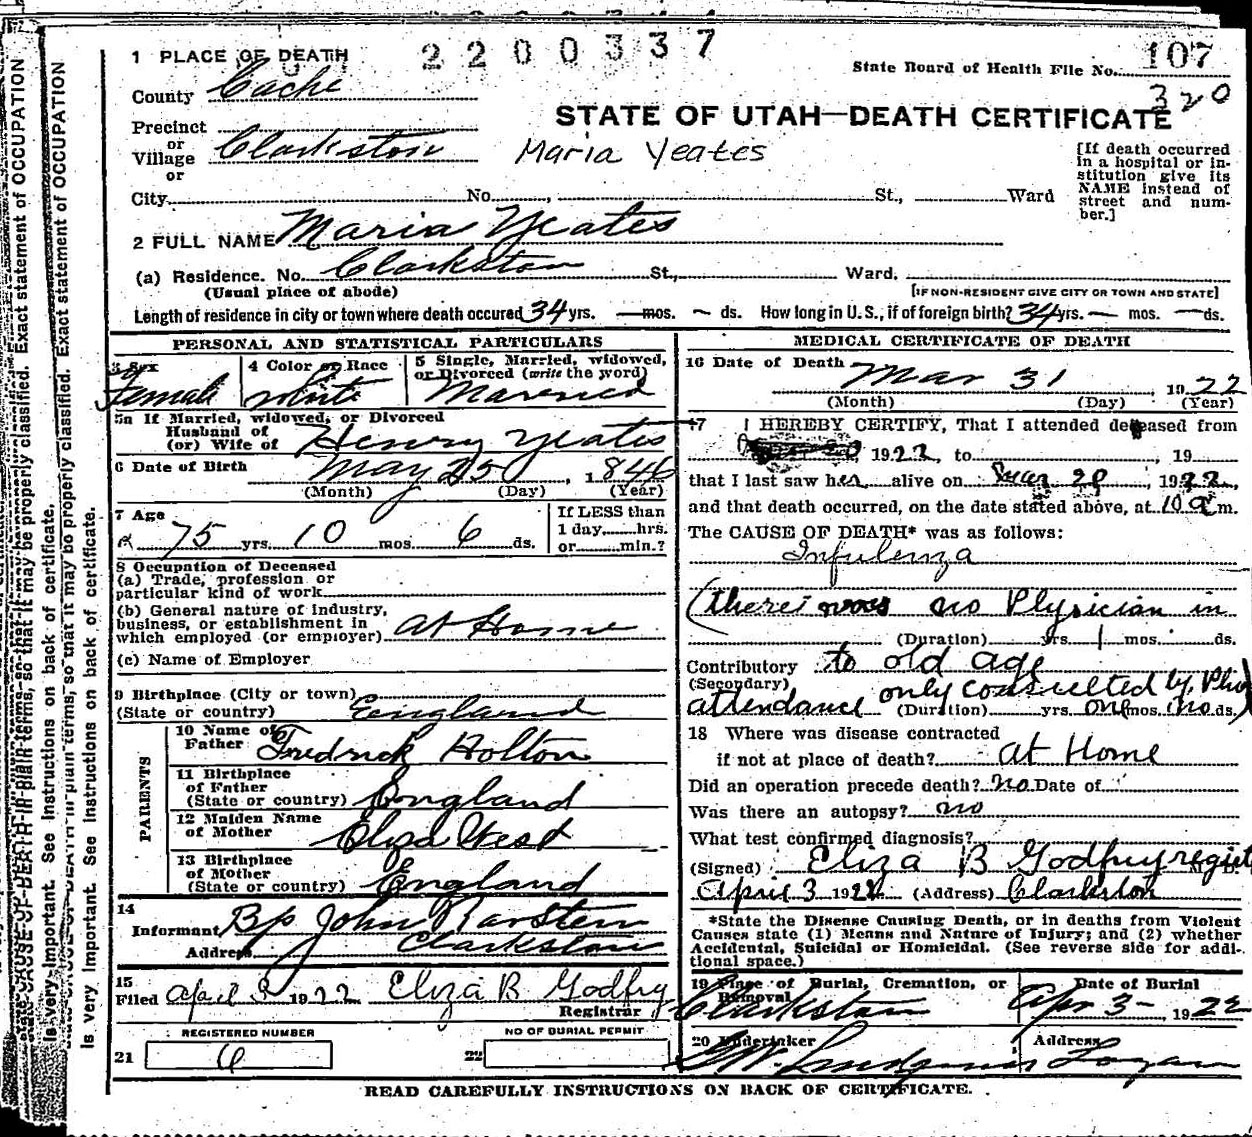 2200337
1 PLACE OF DEATH
County Cache
State Board of Health File No. 107
320
STATE OF UTAH—DEATH CERTIFICATE
Precinct
or
Village Clarkston
or
Maria Yeates
[If death occurred
in a hospital or in-
stitution give its
NAME instead of
street and num-
ber.]
City No. , St., Ward
2 FULL NAME Maria Yeates
(a) Residence. No. Clarkston St., Ward.
(Usual place of abode)
[IF NON-RESIDENT GIVE CITY OR TOWN AND STATE]
Length of residence in city or town where death occured 34 yrs. — mos. ~ ds. How long in U. S., if of foreign birth? 34 yrs. — mos. — ds.
PERSONAL AND STATISTICAL PARTICULARS
3 Sex
Female
4 Color or Race
white
5 Single, Married, widowed,
or Divorced (write the word)
Married
5a If Married, widowed, or Divorced
Husband of
(or) Wife of Henry Yeates
6 Date of Birth
May 25, 1846
(Month) (Day) (Year)
7 Age
75 yrs. 10 mos. 6 ds.
If LESS than
1 day hrs.
or min.?
8 Occupation of Deceased
(a) Trade, profession or
particular kind of work
(b) General nature of industry,
business, or establishment in
which employed (or employer) at Home
(c) Name of Employer
9 Birthplace (City or town)
(State or country) England
PARENTS
10 Name of
Father Fredrick Holton
11 Birthplace
of Father
(State or country) England
12 Maiden Name
of Mother Eliza West
13 Birthplace
of Mother
(State or country) England
14
Informant Bp John
Address Clarkston
15
Filed April 3 1922 Eliza B Godfry
Registrar
REGISTERED NUMBER
21 6
NO OF BURIAL PERMIT
22
MEDICAL CERTIFICATE OF DEATH
16 Date of Death
Mar 31 1922
(Month) (Day) (Year)
17 I HEREBY CERTIFY, That I attended deceased from
1922, to , 19
that I last saw her alive on Mar 20, 1922,
and that death occurred, on the date stated above, at 10 a m.
The CAUSE OF DEATH* was as follows:
Infulenza
(there was no Physician in
(Duration) yrs. 1 mos. ds.
Contributory to old age
(Secondary) only consulted by
attendance (Duration) yrs. one mos. no ds.)
18 Where was disease contracted
if not at place of death? at Home
Did an operation precede death? no Date of
Was there an autopsy? no
What test confirmed diagnosis?
(Signed) Eliza B Godfrey regist M. D.
April 3 1922 (Address) Clarkston
*State the Disease Causing Death, or in deaths from Violent
Causes state (1) Means and Nature of Injury; and (2) whether
Accidental, Suicidal or Homicidal. (See reverse side for addi-
tional space.)
19 Place of Burial, Cremation, or
Removal
Clarkston
Date of Burial
Apr 3-, 1922
20 Undertaker
Address
Logan
READ CAREFULLY INSTRUCTIONS ON BACK OF CERTIFICATE.
CAUSE OF DEATH in plain terms, so that it may be properly classified. Exact statement of OCCUPATION
is very important. See instructions on back of certificate.